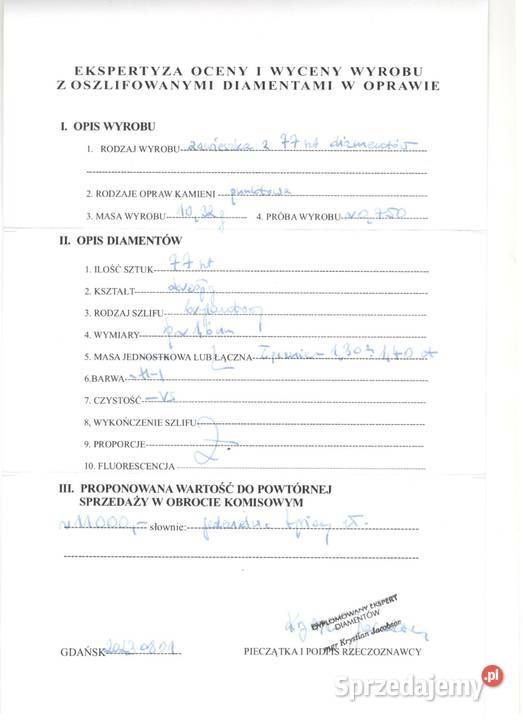 EKSPERTYZA OCENY I WYCENY WYROBU
Z OSZLIFOWANYMI DIAMENTAMI W OPRAWIE
I. OPIS WYROBU
1. RODZAJ WYROBU zawieszka z 77 szt diamentów
2. RODZAJE OPRAW KAMIENI punktowa
3. MASA WYROBU 10,22g 4. PRÓBA WYROBU ~0,750
II. OPIS DIAMENTÓW
1. ILOŚĆ SZTUK 77 szt
2. KSZTAŁT okrągły
3. RODZAJ SZLIFU
4. WYMIARY
5. MASA JEDNOSTKOWA LUB ŁĄCZNA łącznie ~ 1,30 1,40 ct
6.BARWA ~H-I
7. CZYSTOŚĆ ~VS
8, WYKOŃCZENIE SZLIFU
9. PROPORCJE
10. FLUORESCENCJA
III. PROPONOWANA WARTOŚĆ DO POWTÓRNEJ
SPRZEDAŻY W OBROCIE KOMISOWYM
~11000,- słownie: zł.
DYPLOMOWANY EKSPERT
DIAMENTÓW
mgr Krystian Jacobson
GDAŃSK PIECZĄTKA I PODPIS RZECZOZNAWCY
Sprzedajemy.pl